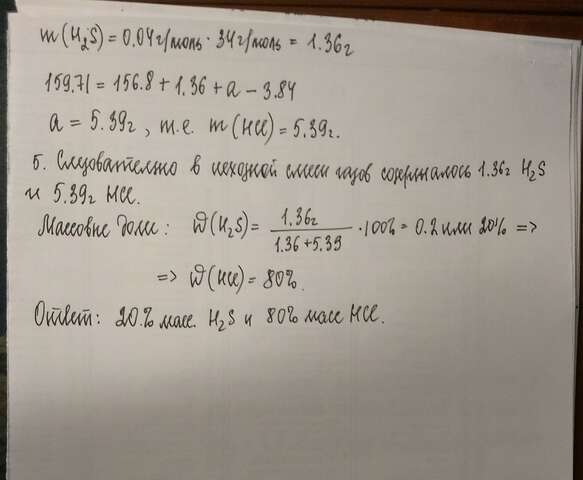 m(H₂S) = 0.04г/моль · 34г/моль = 1.36г
159.71 = 156.8 + 1.36 + a - 3.84
a = 5.39г, т.е. m(HCl) = 5.39г.
5. Следовательно в исходной смеси газов содержалось 1.36г H₂S
и 5.39г HCl.
Массовые доли: ω(H₂S) = 1.36г / 1.36+5.39 · 100% = 0.2 или 20% =>
=> ω(HCl) = 80%.
Ответ: 20% масс. H₂S и 80% масс HCl.